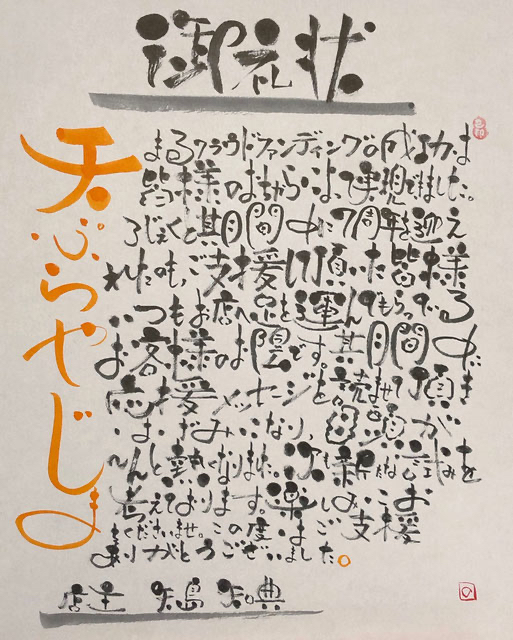 御礼状
天ぷらやじま
まるクラウドファンディングの成功は
皆様のおちからによって実現できました。
ろじぇくと期間中に7周年を迎え
れたのも、ご支援して頂いた皆様
いつもお店へ足を運んでもらっている
お客様のお陰です。期間中
応援メッセージを読ませて頂き
なり、目頭が
じ〜んと熱くなりました。次も新たな試みを
考えております。楽しみにお
くださいませ。この度はご支援
ありがとうございました。
店主 矢島 知典